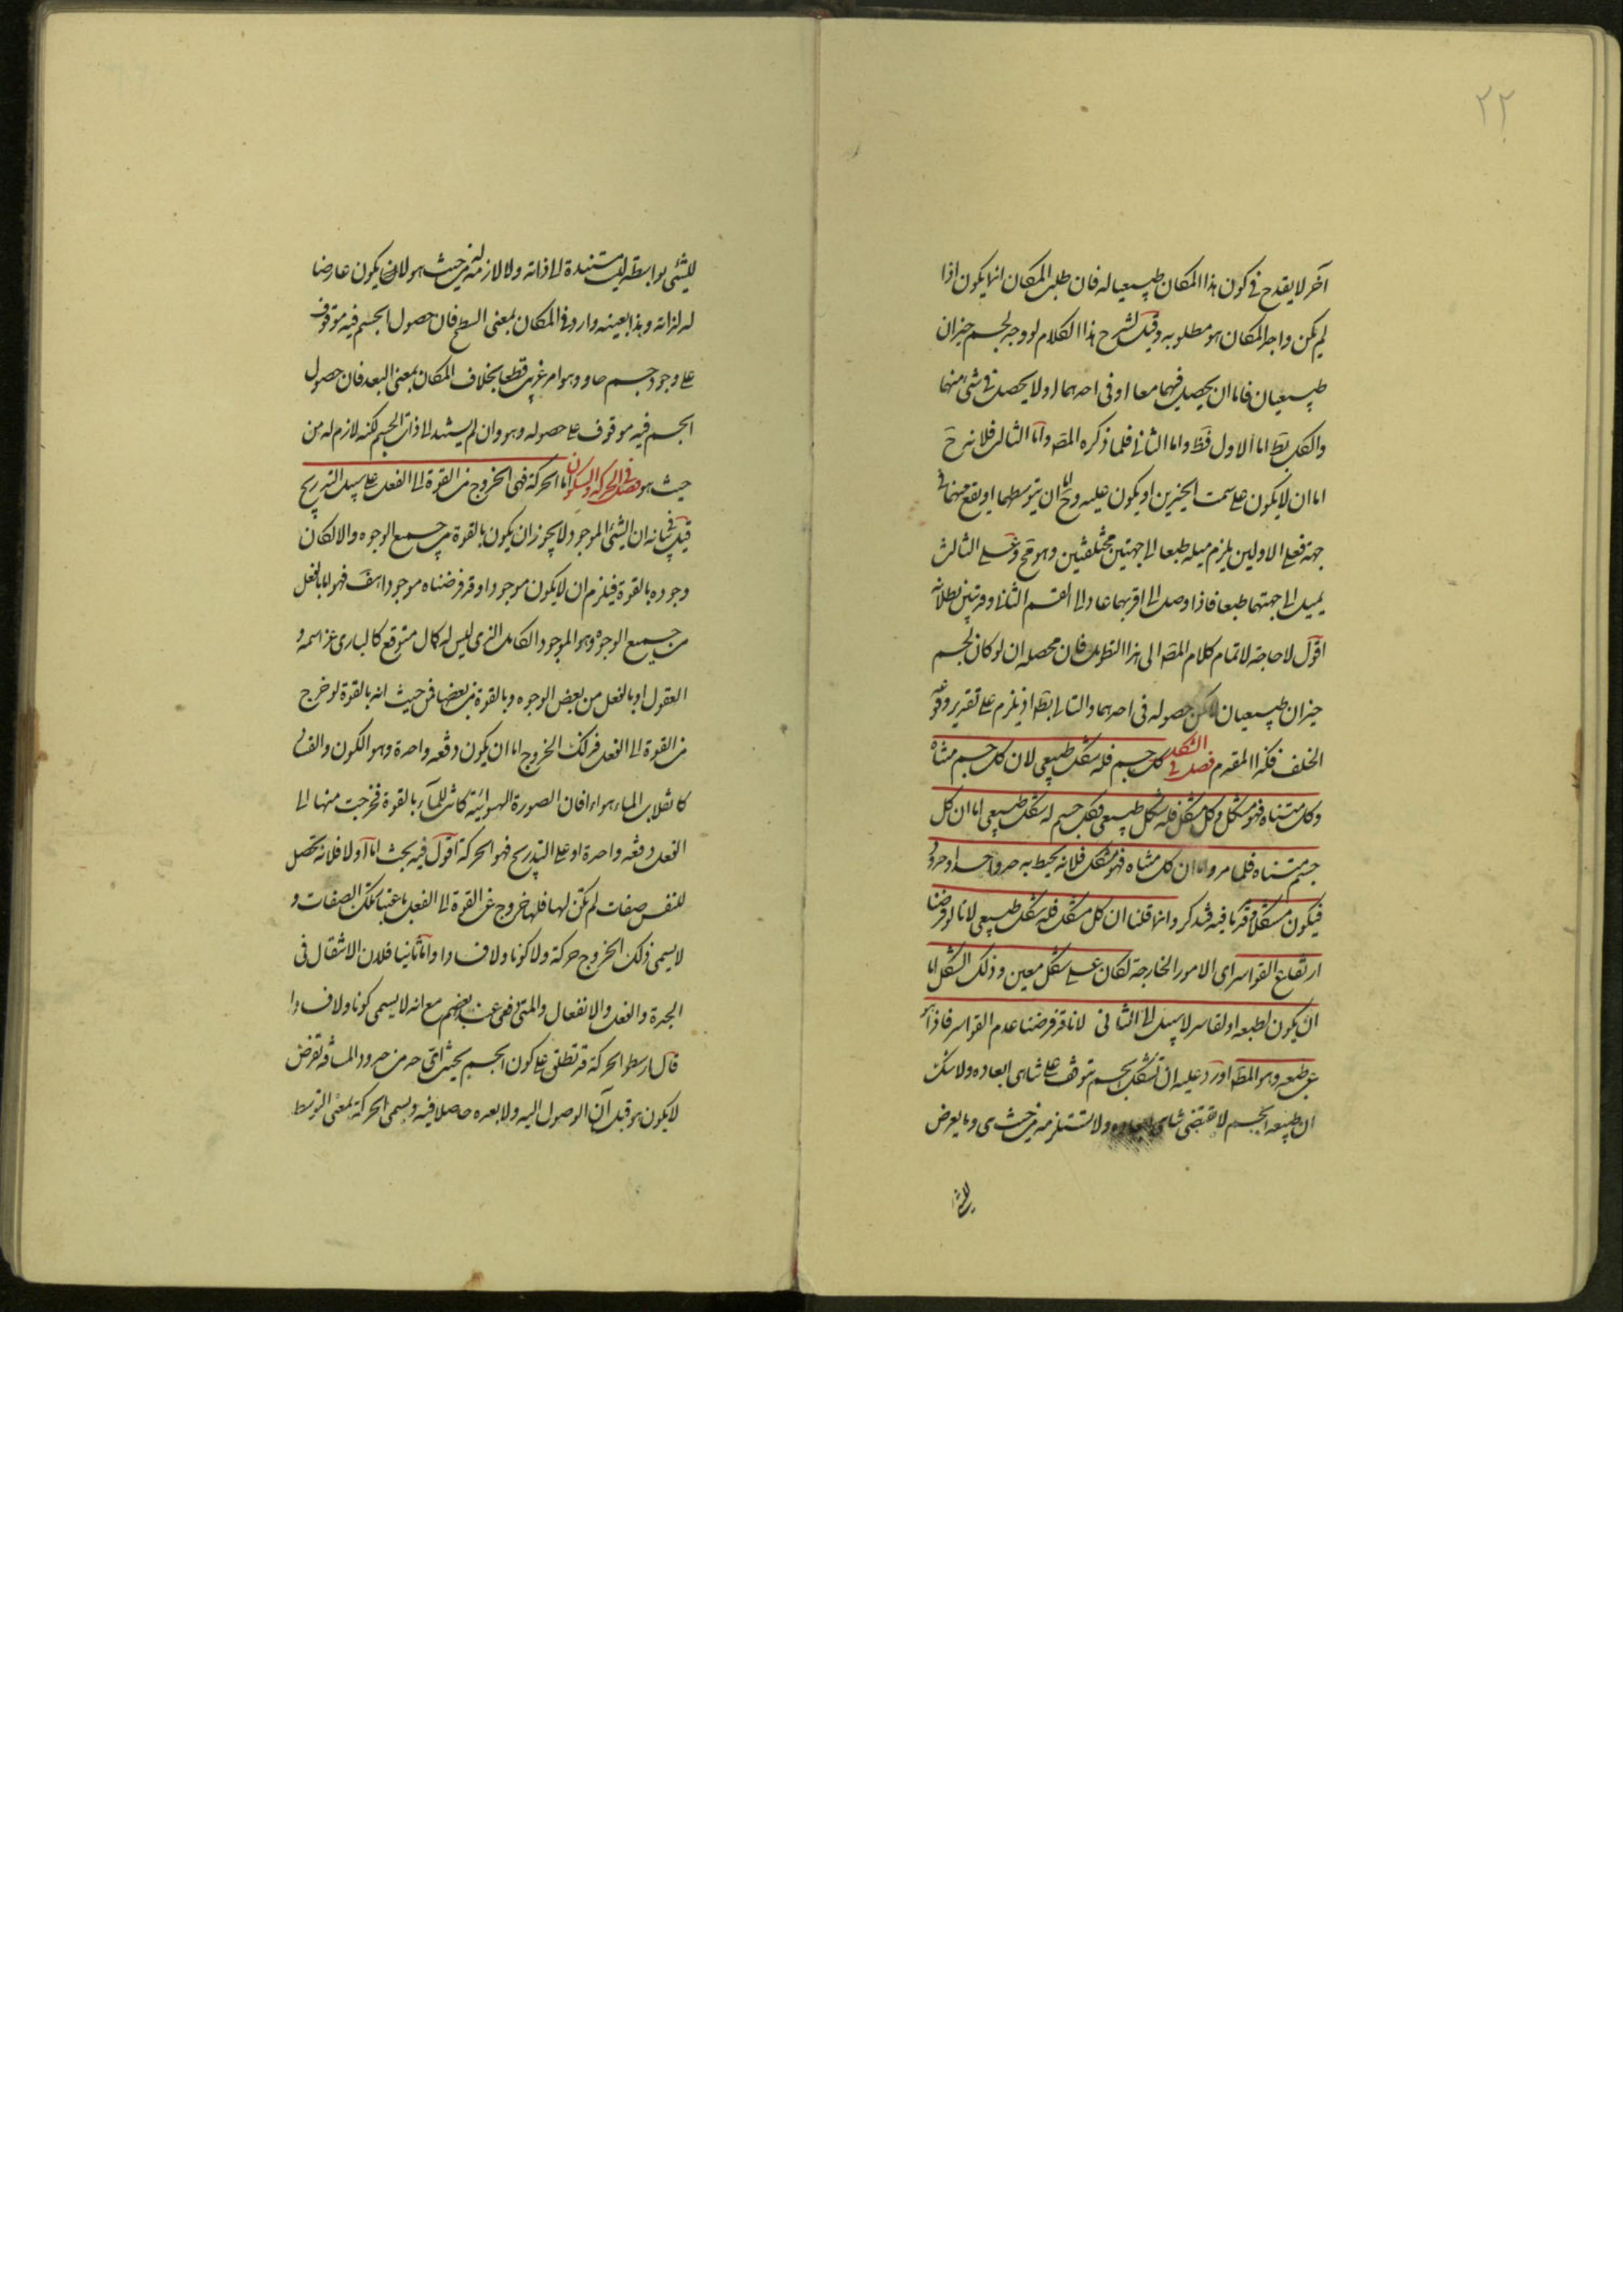 ٢٢
آخر لا يقدح في كون هذا المكان طبيعيا له فان طلب المكان انما يكون اذا
لم يكن واجد المكان هو مطلوبه وقيل لشرح هذا الكلام لو وجد لجسم حيزان
طبيعيان فاما ان يحصل فيهما معا او في احدهما او لا يحصل في شئ منهما
والكل بط اما الاول فظ واما الثاني فلما ذكره المصه واما الثالث فلانه ح
اما ان لا يكون على سمت الحيزين او يكون عليه وح اما ان يتوسطهما او يقع منهما في
جهة فعلى الاولين يلزم ميله طبعا الى جهتين مختلفتين وهو مح وعلى الثالث
يميل الى جهتهما طبعا فاذا وصل الى اقربهما عاد الى القسم الثاني وقد تبين بطلانه
اقول لا حاجة لاتمام كلام المصه الى هذا التطويل فان محصله ان لو كان لجسم
حيزان طبيعيان لامكن حصوله في احدهما والتالي بط اذ يلزم على تقدير وقوعه
الخلف فكذا المقدم فصل في الشكل كل جسم فله شكل طبيعي لان كل جسم متناه
وكل متناه فهو متشكل وكل متشكل فله شكل طبيعي فكل جسم له شكل طبيعي اما ان كل
جسم متناه فلما مر واما ان كل متناه فهو متشكل فلانه يحيط به حد واحد او حدود
فيكون متشكلا وقد مر ما فيه فتذكر وانما قلنا ان كل متشكل فله شكل طبيعي لانا لو فرضنا
ارتفاع القواسر اى الامور الخارجة لكان على شكل معين وذلك الشكل اما
ان يكون لطبعه او لقاسر لا سبيل الى الثاني لانا قد فرضنا عدم القواسر فاذا هو
عن طبعه وهو المط اورد عليه ان تشكل الجسم يتوقف على تناهى ابعاده ولا شك
ان طبيعة الجسم لا تقتضى تناهى ابعاده ولا تستلزمه من حيث هى وما يعرض
للشئ
للشئ بواسطة ليست مستندة الى ذاته ولا لازمة له من حيث هو لا يكون عارضا
له لذاته وهذا بعينه وارد في المكان بمعنى السطح فان حصول الجسم فيه موقوف
على وجود جسم حاو وهو امر غريب قطعا بخلاف المكان بمعنى البعد فان حصول
الجسم فيه موقوف على حصوله وهو وان لم يستند الى ذات الجسم لكنه لازم له من
حيث هو فصل في الحركة والسكون اما الحركة فهى الخروج من القوة الى الفعل على سبيل التدريج
قيل في بيانه ان الشئ الموجود لا يجوز ان يكون بالقوة من جميع الوجوه والا لكان
وجوده بالقوة فيلزم ان لا يكون موجودا وقد فرضناه موجودا هف فهو اما بالفعل
من جميع الوجوه وهو الموجود الكامل الذى ليس له كمال متوقع كالبارى عز اسمه و
العقول او بالفعل من بعض الوجوه وبالقوة من بعضها فمن حيث انه بالقوة لو خرج
من القوة الى الفعل فذلك الخروج اما ان يكون دفعة واحدة وهو الكون والفساد
كانقلاب الماء هواء فان الصورة الهوائية كانت للماء بالقوة فخرجت منها الى
الفعل دفعة واحدة او على التدريج فهو الحركة اقول فيه بحث اما اولا فلانه تحصل
للنفس صفات لم تكن لها فلها خروج عن القوة الى الفعل باعتبار تلك الصفات و
لا يسمى ذلك الخروج حركة ولا كونا ولا فسادا واما ثانيا فلان الانتقال فى
الجدة والفعل والانفعال والمتى دفعى عند بعضهم مع انه لا يسمى كونا ولا فسادا
قال ارسطو الحركة قد تطلق على كون الجسم بحيث اى حد من حدود المسافة تفرض
لا يكون هو قبل آن الوصول اليه ولا بعده حاصلا فيه ويسمى الحركة بمعنى التوسط